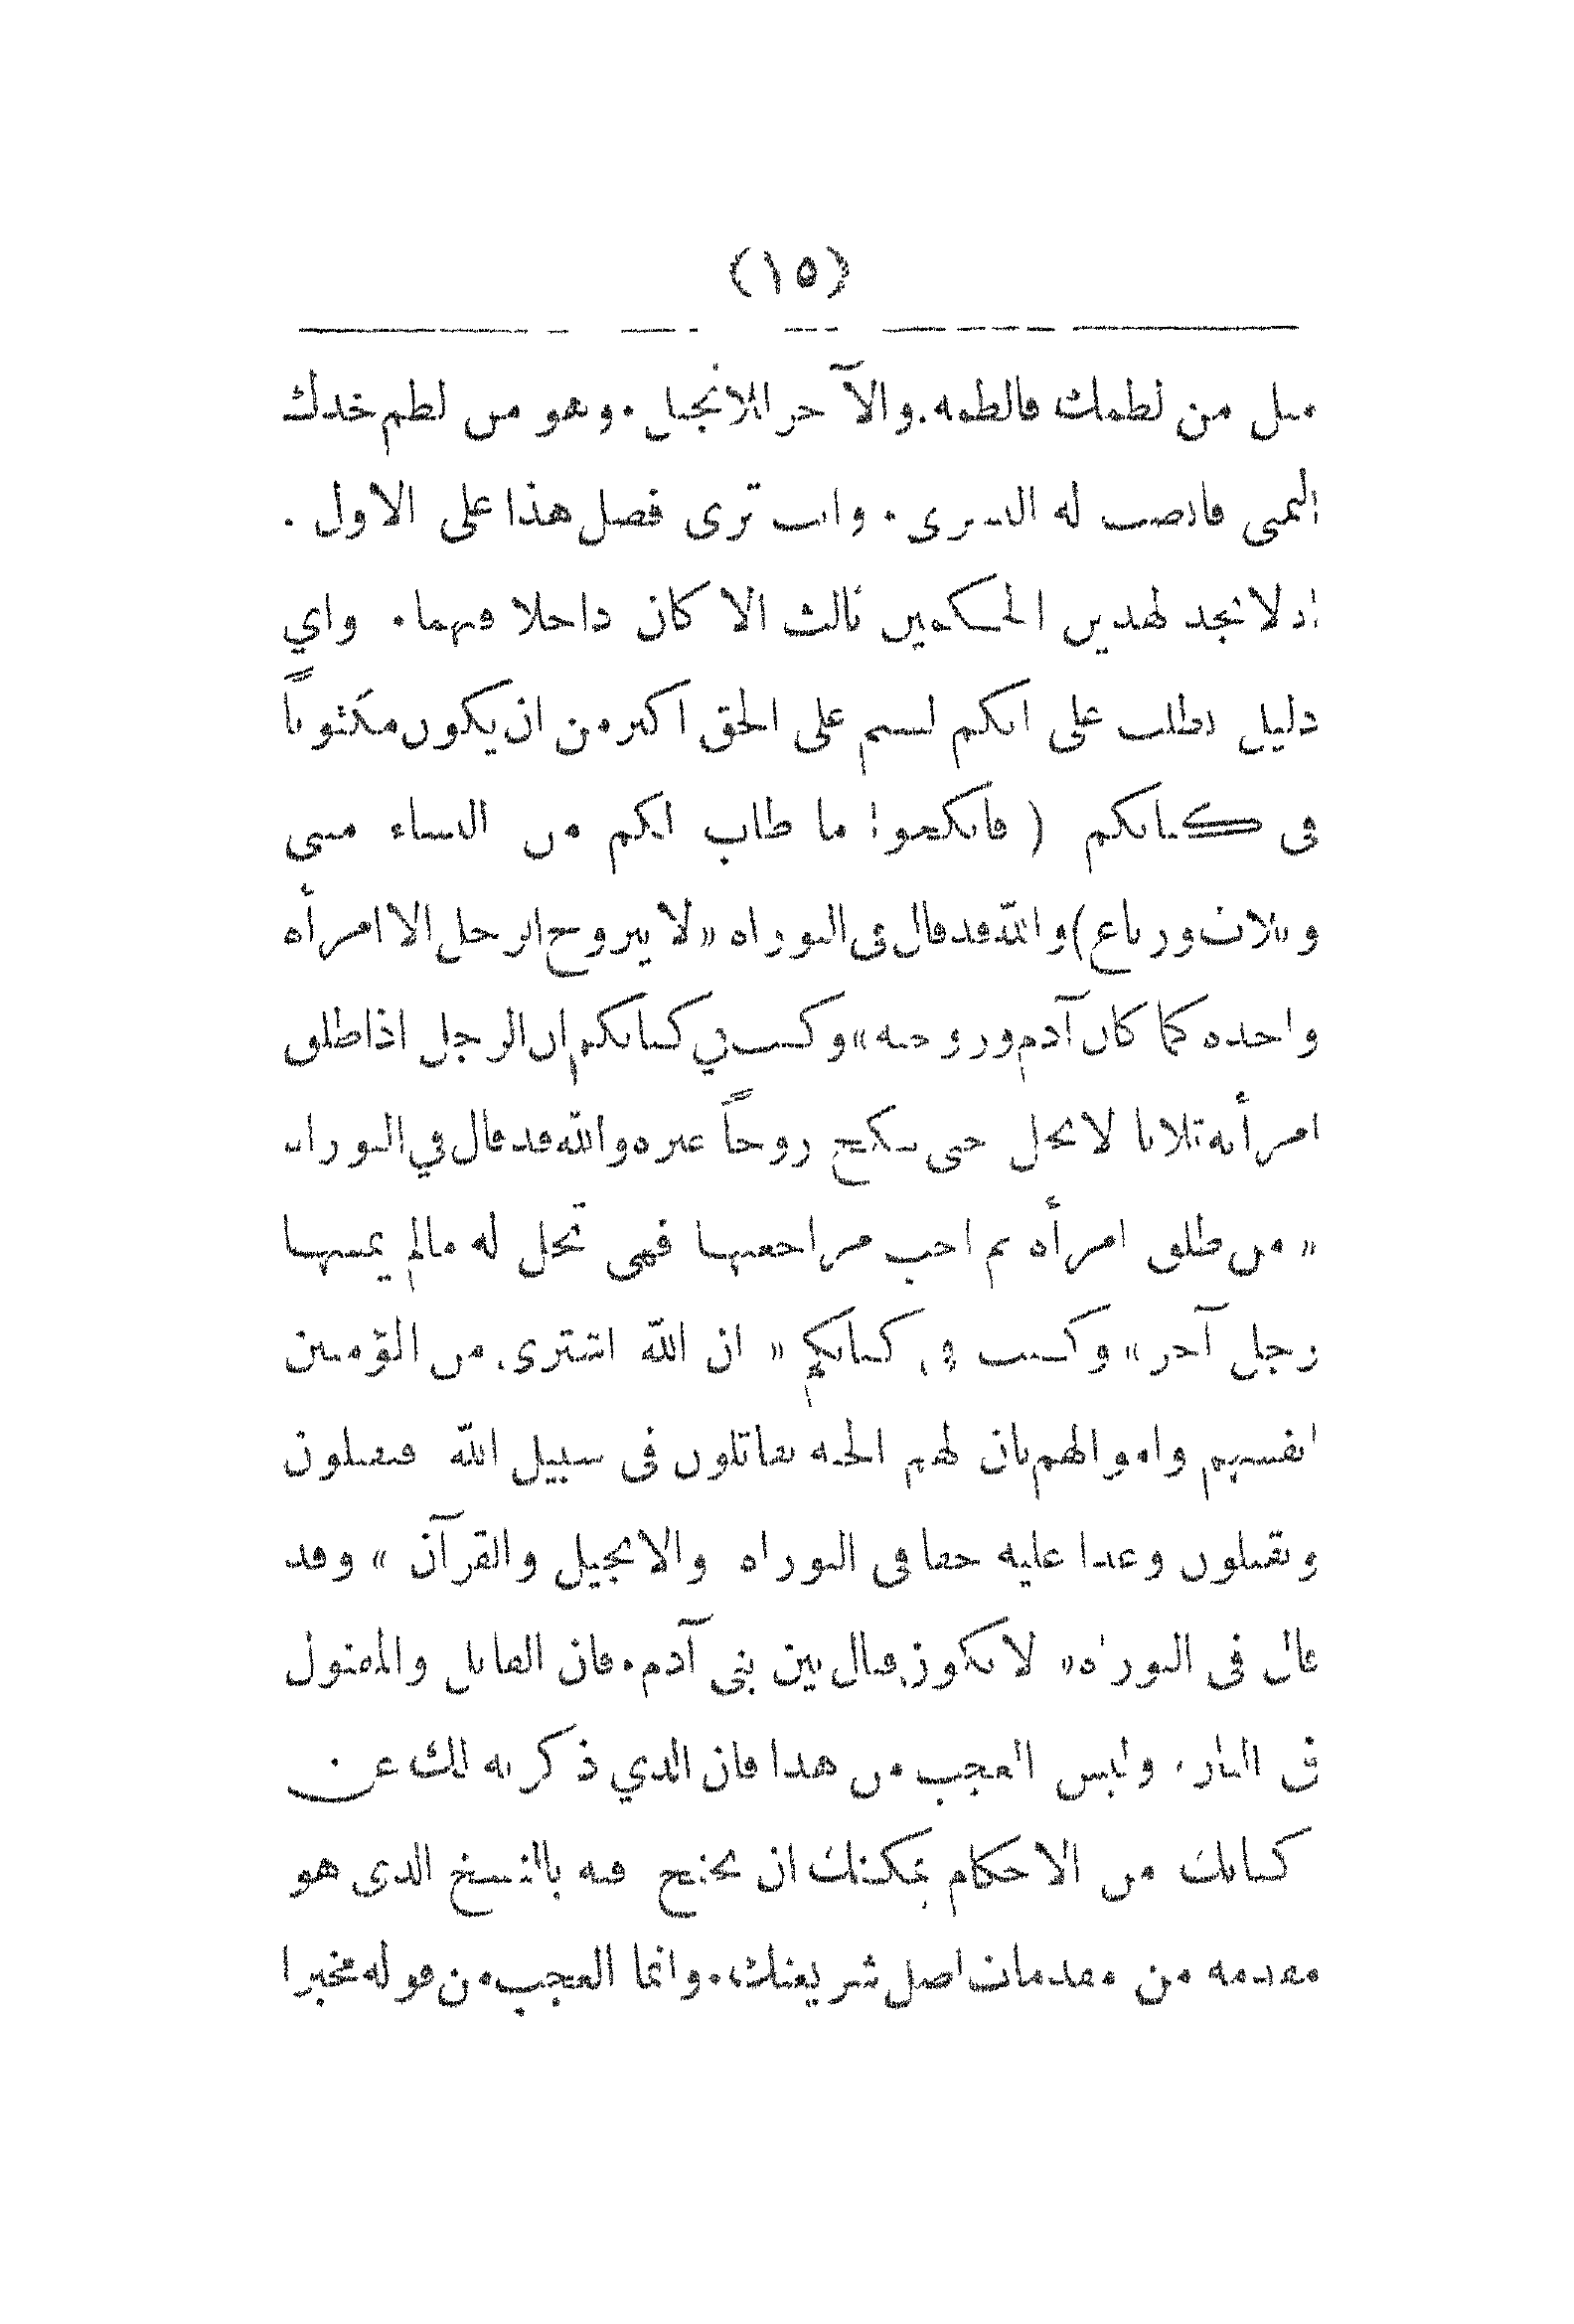 (١٥)
مثل من لطمك فالطمه. والآخر للانجيل. وهو من لطم خدك
اليمنى فانصب له اليسرى. وانت ترى فضل هذا على الاول.
اذ لا تجد لهذين الحكمين ثالث الا كان داخلا فيهما. واي
دليل تطلب على انكم لستم على الحق اكثر من ان يكون مكتوباً
في كتابكم ( فانكحوا ما طاب لكم من النساء مثنى
وثلاث ورباع) والله قد قال في التوراة «لا يتزوج الرجل الا امرأة
واحدة كما كان آدم وزوجته» وكتب في كتابكم ان الرجل اذا طلق
امرأته ثلاثا لا تحل حتى تنكح زوجاً غيره والله قد قال في التوراة
« من طلق امرأة ثم احب مراجعتها فهي تحل له ما لم يمسها
رجل آخر » وكتب في كتابكم « ان الله اشترى من المؤمنين
انفسهم واموالهم بان لهم الجنة يقاتلون في سبيل الله فيقتلون
ويقتلون وعدا عليه حقا في التوراة والانجيل والقرآن » وقد
قال في التوراة « لا يكون قتال بين بني آدم. فان القاتل والمقتول
في النار. وليس العجب من هذا فان الذي ذكرته لك عن
كتابك من الاحكام يمكنك ان تحتج فيه بالنسخ الذي هو
مقدمة من مقدمات اصل شريعتك. وانما العجب من قوله مخبرا